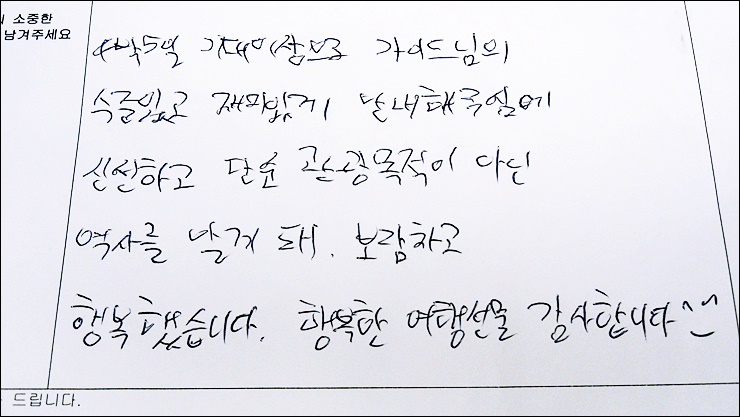 소중한
남겨주세요
4박5일 기대이상으로 가이드님의
수준있고 재미있게 안내해주심에
신선하고 단순 관광목적이 아닌
역사를 알게 돼. 보람차고
행복했습니다. 행복한 여행선물 감사합니다^^
드립니다.